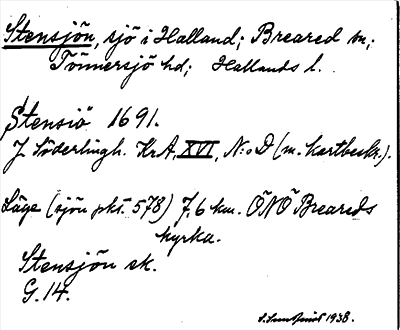 Stensjön, sjö i Halland; Breared sn;
Tönnersjö hd; Hallands l.
Stensiö 1691.
J. Söderlingh. KrA, XVI, N:o D (m. kartbeskr.).
Läge (sjön pkt. 578) 7,6 km. ÖNÖ Breareds
kyrka.
Stensjön ek.
G. 14.
1938.